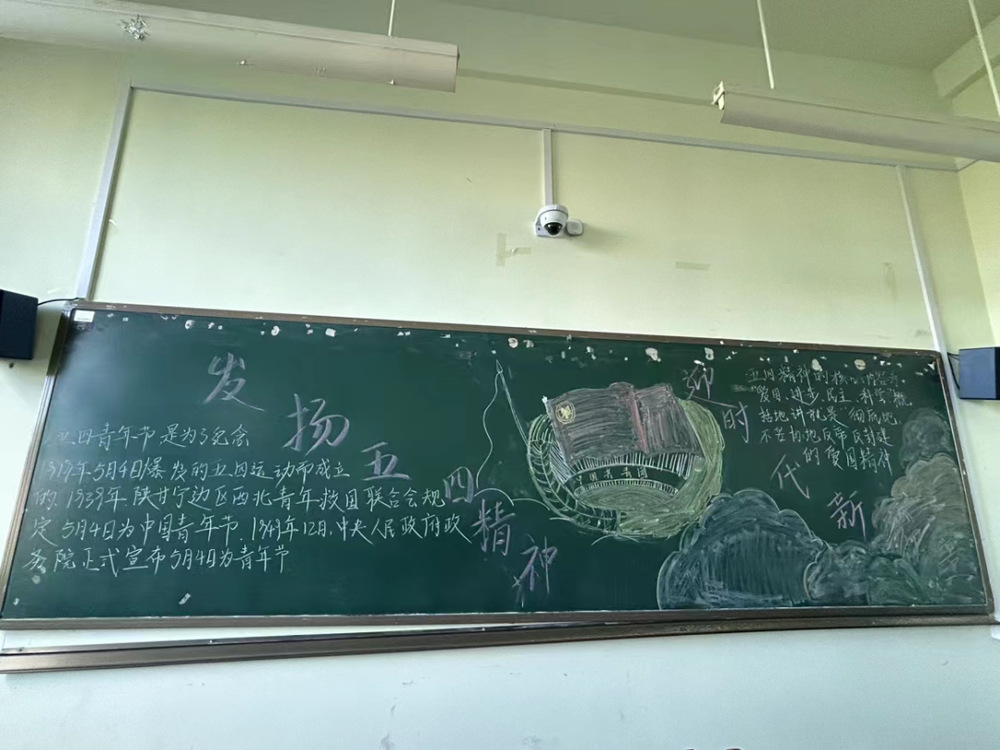 发扬五四精神
五四青年节是为了纪念
1919年5月4日爆发的五四运动而成立
的.1939年陕甘宁边区西北青年救国联合会规
定5月4日为中国青年节.1949年12月,中央人民政府政
务院正式宣布5月4日为青年节
迎时代新
五四精神的核心内容为
"爱国、进步、民主、科学"概
括地讲就是彻底地、
不妥协地反帝反封建
的爱国精神